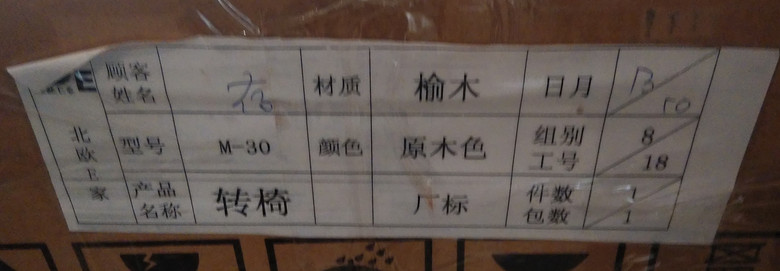 顾客姓名 材质 榆木 日月
北欧E家 型号 M-30 颜色 原木色 组别工号 8 18
产品名称 转椅 厂标 件数包数 1 1